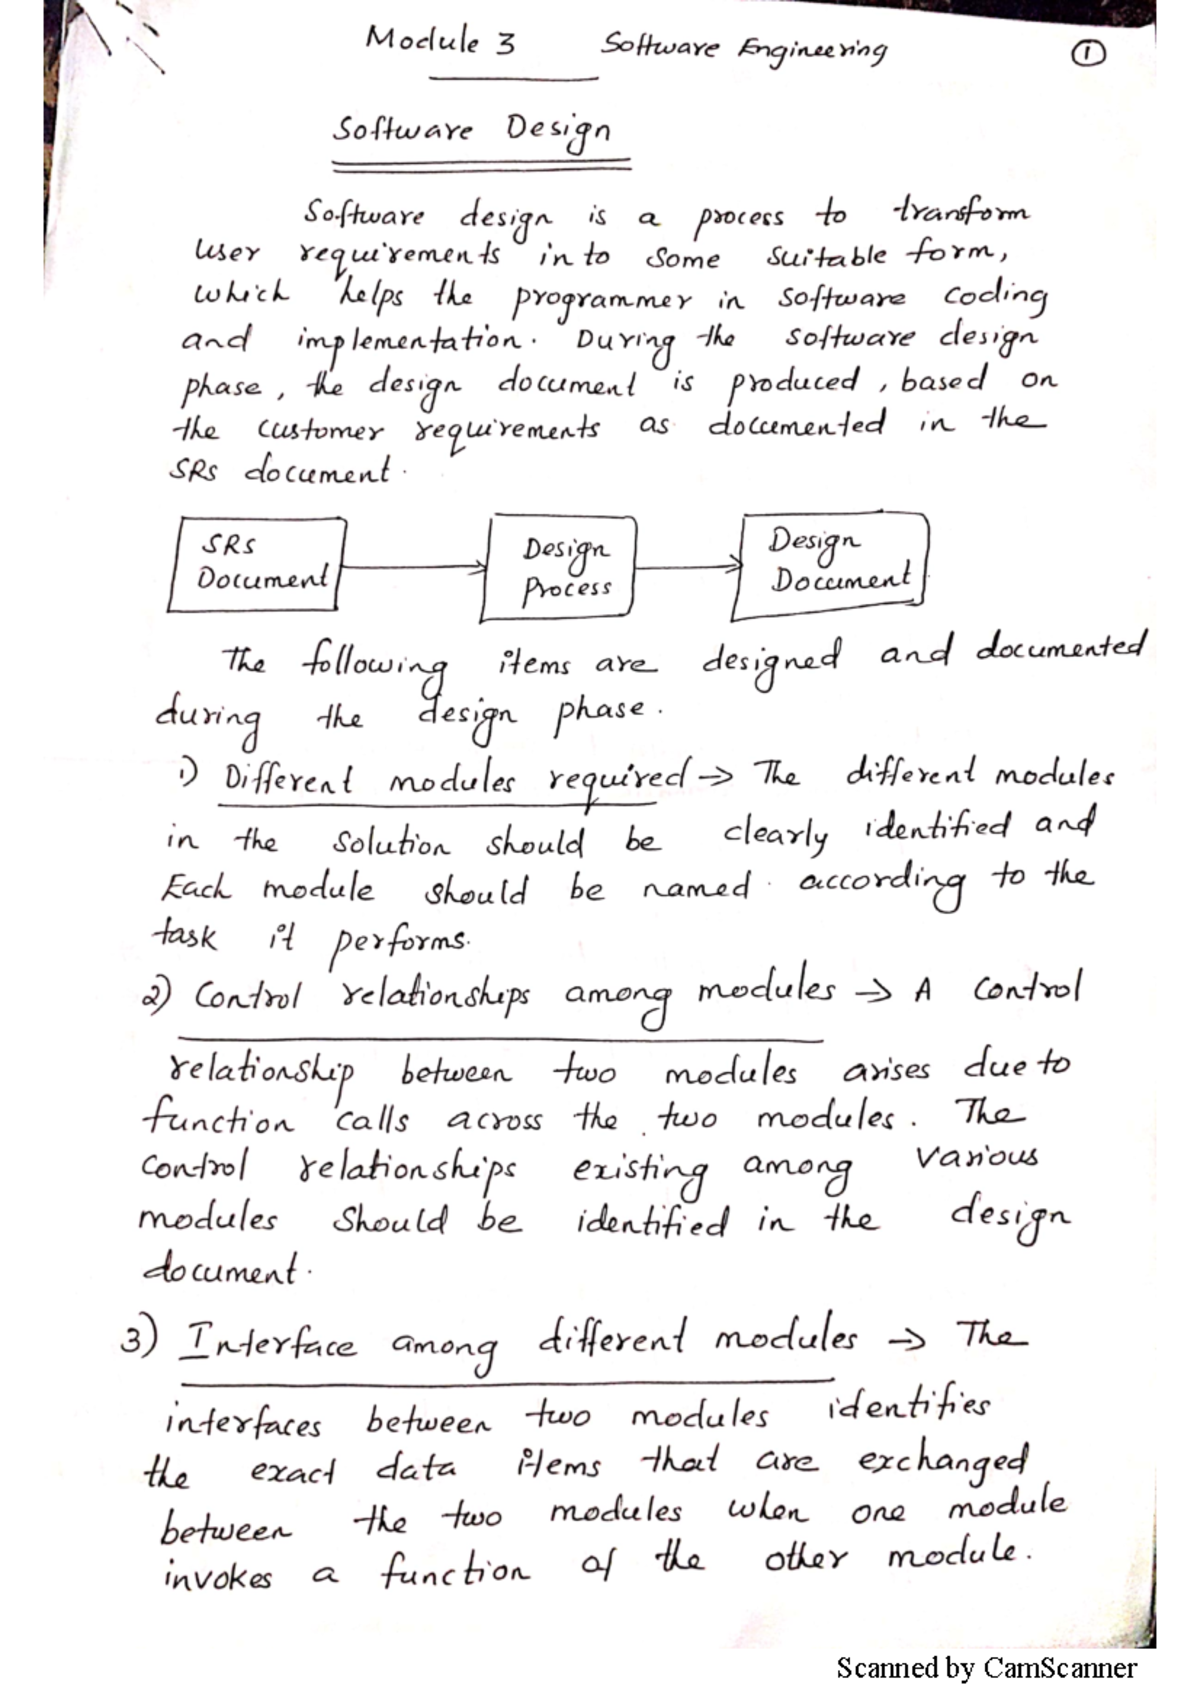 Module 3 Software Engineering 1
Software Design
Software design is a process to transform
user requirements in to some suitable form,
which helps the programmer in software coding
and implementation. During the software design
phase, the design document is produced, based on
the customer requirements as documented in the
SRS document.
SRS
Document
Design
Process
Design
Document
The following items are designed and documented
during the design phase.
1) Different modules required → The different modules
in the solution should be clearly identified and
Each module should be named according to the
task it performs.
2) Control relationships among modules → A control
relationship between two modules arises due to
function calls across the two modules. The
control relationships existing among various
modules should be identified in the design
document.
3) Interface among different modules → The
interfaces between two modules identifies
the exact data items that are exchanged
between the two modules when one module
invokes a function of the other module.
Scanned by CamScanner